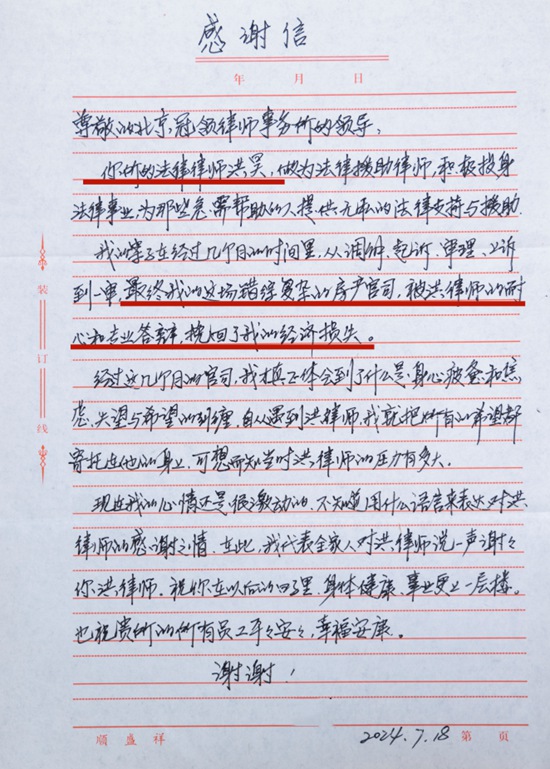 感谢信
年 月 日
尊敬的北京冠领律师事务所的领导，
你所的法律律师洪昊，做为法律援助律师，积极投身
法律事业，为那些急需帮助的人提供无私的法律支持与援助。
我的案子在经过几个月的时间里，从调解、起诉、审理、上诉
到一审，最终我的这场错综复杂的房产官司，被洪律师的耐
心和专业答辩，挽回了我的经济损失。
经过这几个月的官司，我才真正体会到了什么是身心疲惫和焦
虑，失望与希望的纠缠，自从遇到洪律师，我就把所有的希望都
寄托在他的身上，可想而知当时洪律师的压力有多大。
现在我的心情还是很激动的，不知道用什么语言来表达对洪
律师的感谢之情，在此，我代表全家人对洪律师说一声谢々
你洪律师。祝你在以后的日子里，身体健康、事业更上一层楼。
也祝贵所的所有员工平々安々，幸福安康。
谢谢！
2024.7.18
顺盛祥 第 页
装订线